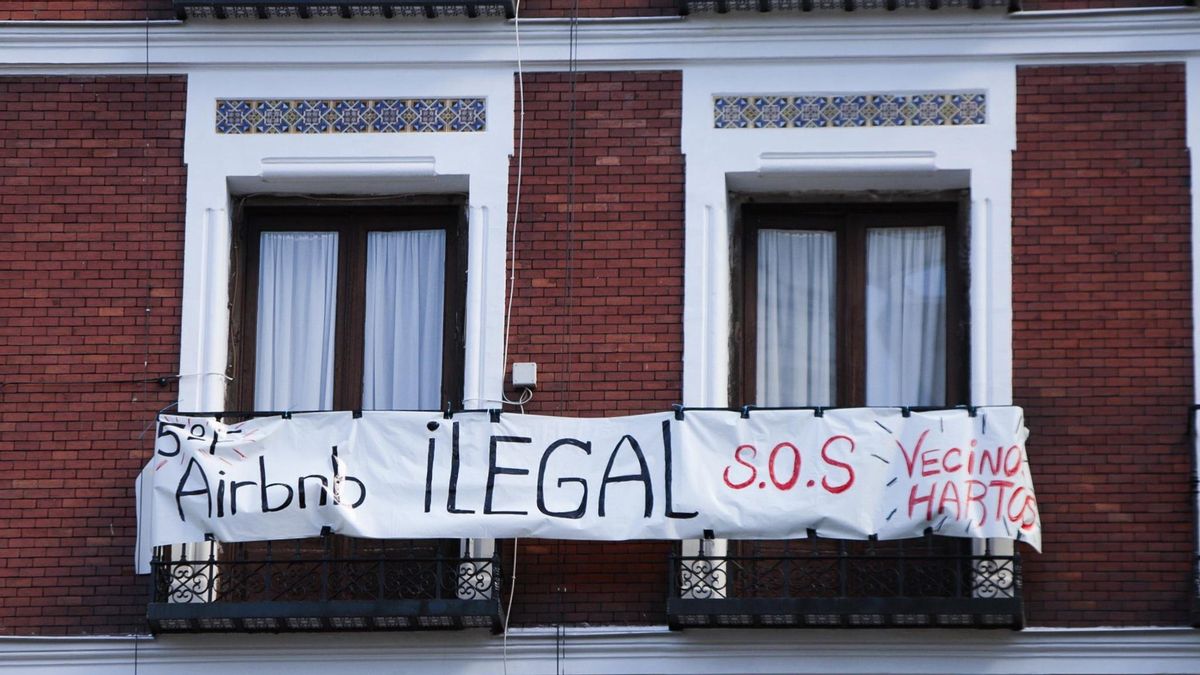 5º
Airbnb ILEGAL S.O.S
VECINOS
HARTOS